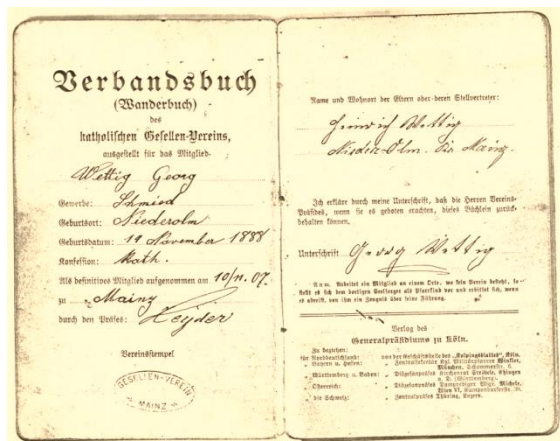 Verbandsbuch
(Wanderbuch)
des
katholischen Gesellen-Vereins,
ausgestellt für das Mitglied
Wettig Georg
Gewerbe: Schmied
Geburtsort: Niederolm
Geburtsdatum: 14 November 1888
Konfession: Kath.
Als definitives Mitglied aufgenommen am 10/11. 07.
zu Mainz
durch den Präses: Heyder
Vereinsstempel
GESELLEN-VEREIN
MAINZ
Name und Wohnort der Eltern oder deren Stellvertreter:
Heinrich Wettig
Nieder-Olm. bei Mainz.
Ich erkläre durch meine Unterschrift, daß die Herren Vereins-
Präsides, wenn sie es geboten erachten, dieses Büchlein zurück-
behalten können.
Unterschrift Georg Wettig
Anm. Arbeitet ein Mitglied an einem Orte, wo kein Verein besteht, so
stellt es sich dem dortigen Seelsorger als Pfarrkind vor und erbittet sich, wenn
es abreist, von ihm ein Zeugnis über seine Führung.
Verlag des
Generalpräsidiums zu Köln.
Zu beziehen:
für Norddeutschland: von der Geschäftsstelle des „Kolpingsblattes“, Köln.
Bayern u. Hessen: Zentralsekretär Kgl. Militärpfarrer Winkler,
München,
Württemberg u. Baden: Diözesanpräses Ströbele, Ehingen
a. D. (Württemberg).
Österreich: Diözesanpräses Domprediger Msgr. Michels,
Wien VI, Gumpendorferstr. 39.
die Schweiz: Zentralpräses Thüring, Luzern.